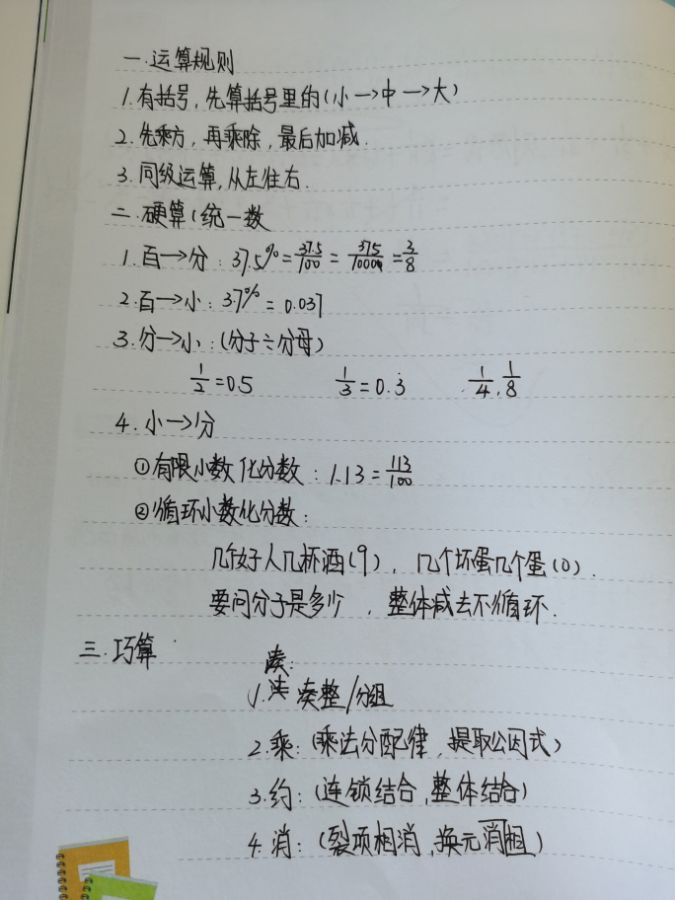 一.运算规则
1.有括号,先算括号里的(小→中→大)
2.先乘方,再乘除,最后加减.
3.同级运算,从左往右.
二.硬算(统一数
1.百→分:37.5%=37.5/100=375/1000=3/8
2.百→小:3.7%=0.037
3.分→小:(分子÷分母)
1/2=0.5 1/3=0.3̇ 1/4,1/8
4.小→分
①有限小数化分数:1.13=113/100
②循环小数化分数:
几个好人几杯酒(9),几个坏蛋几个蛋(0).
要问分子是多少,整体减去不循环.
三.巧算
凑:
1.凑整/分组
2.乘:(乘法分配律,提取公因式)
3.约:(连锁结合,整体结合)
4.消:(裂项相消,换元消)